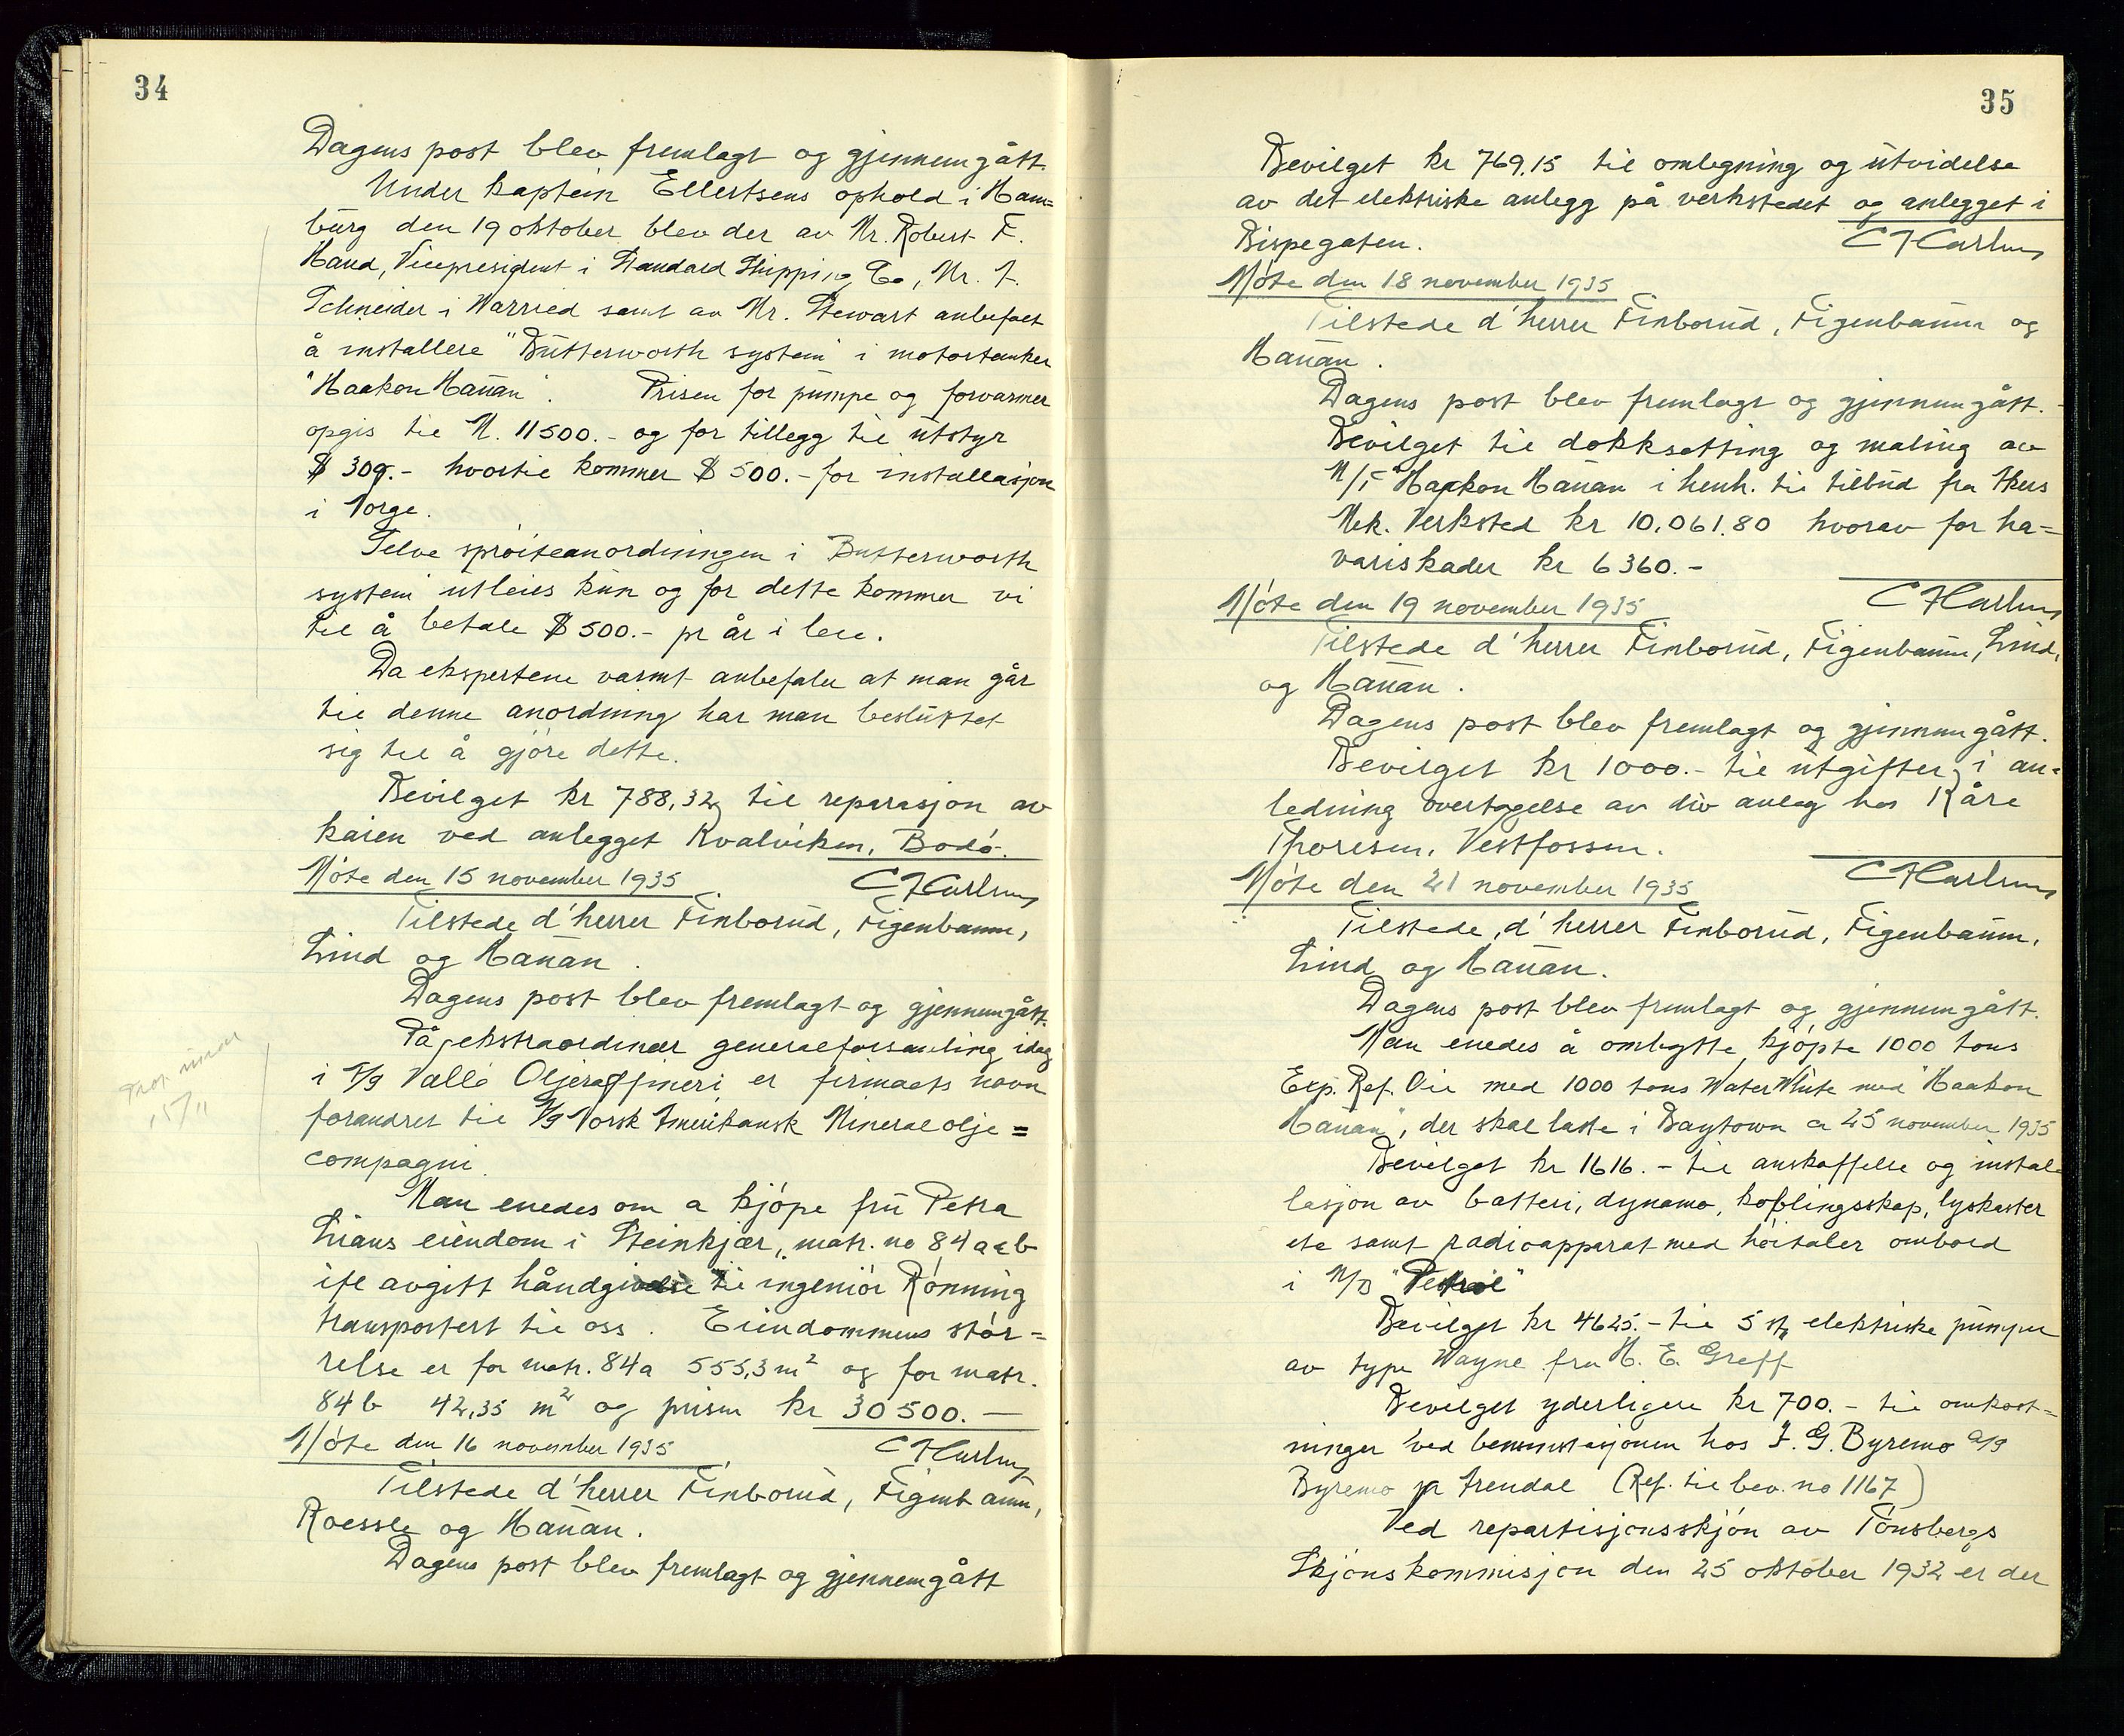 34
Dagens post blev fremlagt og gjennemgått.
Under kaptein Ellertsens ophold i Ham=
burg den 19 oktober blev der av Mr. Robert F.
Hand, Vicepresident i Standard Shipping Co, Mr. F.
Schneider i Warried samt av Mr. Stewart anbefalt
å installere "Butterworth system" i motortanker
"Haakon Hauan". Prisen for pumpe og forvarmer
opgis til M. 11500.- og for tillegg til utstyr
$ 309.- hvortil kommer $ 500.- for installasjon
i Norge.
Selve sprøiteanordningen i Butterworth
system utleies kun og for dette kommer vi
til å betale $ 500.- pr år i leie.
Da ekspertene varmt anbefaler at man går
til denne anordning har man besluttet
sig til å gjøre dette.
Bevilget kr 788,32 til reparasjon av
kaien ved anlegget Kvalviken, Bodø.
Møte den 15 november 1935
Tilstede d'herrer Finborud, Figenbaum,
Lind og Hauan.
Dagens post blev fremlagt og gjennemgått.
På ekstraordinær generalforsamling idag
i A/S Vallø Oljeraffineri er firmaets navn
forandret til A/S Norsk Amerikansk Mineralolje=
compagni.
15/11
Man enedes om a kjøpe fru Petra
Lians eiendom i Steinkjær, matr. no 84 a & b
ifl avgitt håndgivelse til ingeniør Rønning
transportert til oss. Eiendommens stør=
relse er for matr. 84a 555,3 m² og for matr.
84 b 42,35 m² og prisen kr 30500.—
Møte den 16 november 1935
Tilstede d'herrer Finborud, Figenbaum,
Roessle og Hauan.
Dagens post blev fremlagt og gjennemgått
35
Bevilget kr 769,15 til omlegning og utvidelse
av det elektriske anlegg på verkstedet og anlegget i
Bispegaten.
Møte den 18 november 1935
Tilstede d'herrer Finborud, Figenbaum og
Hauan.
Dagens post blev fremlagt og gjennemgått.
Bevilget til dokksetting og maling av
M/T "Haakon Hauan i henh. til tilbud fra Akers
Mek. Verksted kr 10.061.80 hvorav for ha=
variskader kr 6360.-
Møte den 19 november 1935
Tilstede d'herrer Finborud, Figenbaum, Lind,
og Hauan.
Dagens post blev fremlagt og gjennemgått.
Bevilget kr 1000.- til utgifter i an=
ledning overtagelse av div anleg hos Kåre
Thoresen, Vestfossen.
Møte den 21 november 1935
Tilstede, d'herrer Finborud, Figenbaum,
Lind og Hauan.
Dagens post blev fremlagt og gjennemgått.
Man enedes å ombytte kjøpte 1000 tons
Exp. Ref. Oil med 1000 tons Water White med "Haakon
Hauan", der skal laste i Baytown ca 25 november 1935
Bevilget kr 1616.- til anskaffelse og instal=
lasjon av batteri, dynamo, koblingsskap, lyskaster
etc samt radioapparat med høitaler ombord
i M/B "Petrol"
Bevilget kr 4625.- til 5 stk elektriske pumper
av type Wayne fra H. E. Greff
Bevilget yderligere kr 700.- til omkost=
ninger ved bensinstasjonen hos J. G. Byremo a/s
Byremo pr Arendal (Ref. til bev. no 1167)
Ved repartisjonsskjøn av Tønsbergs
Skjønskommisjon den 25 oktober 1932 er der